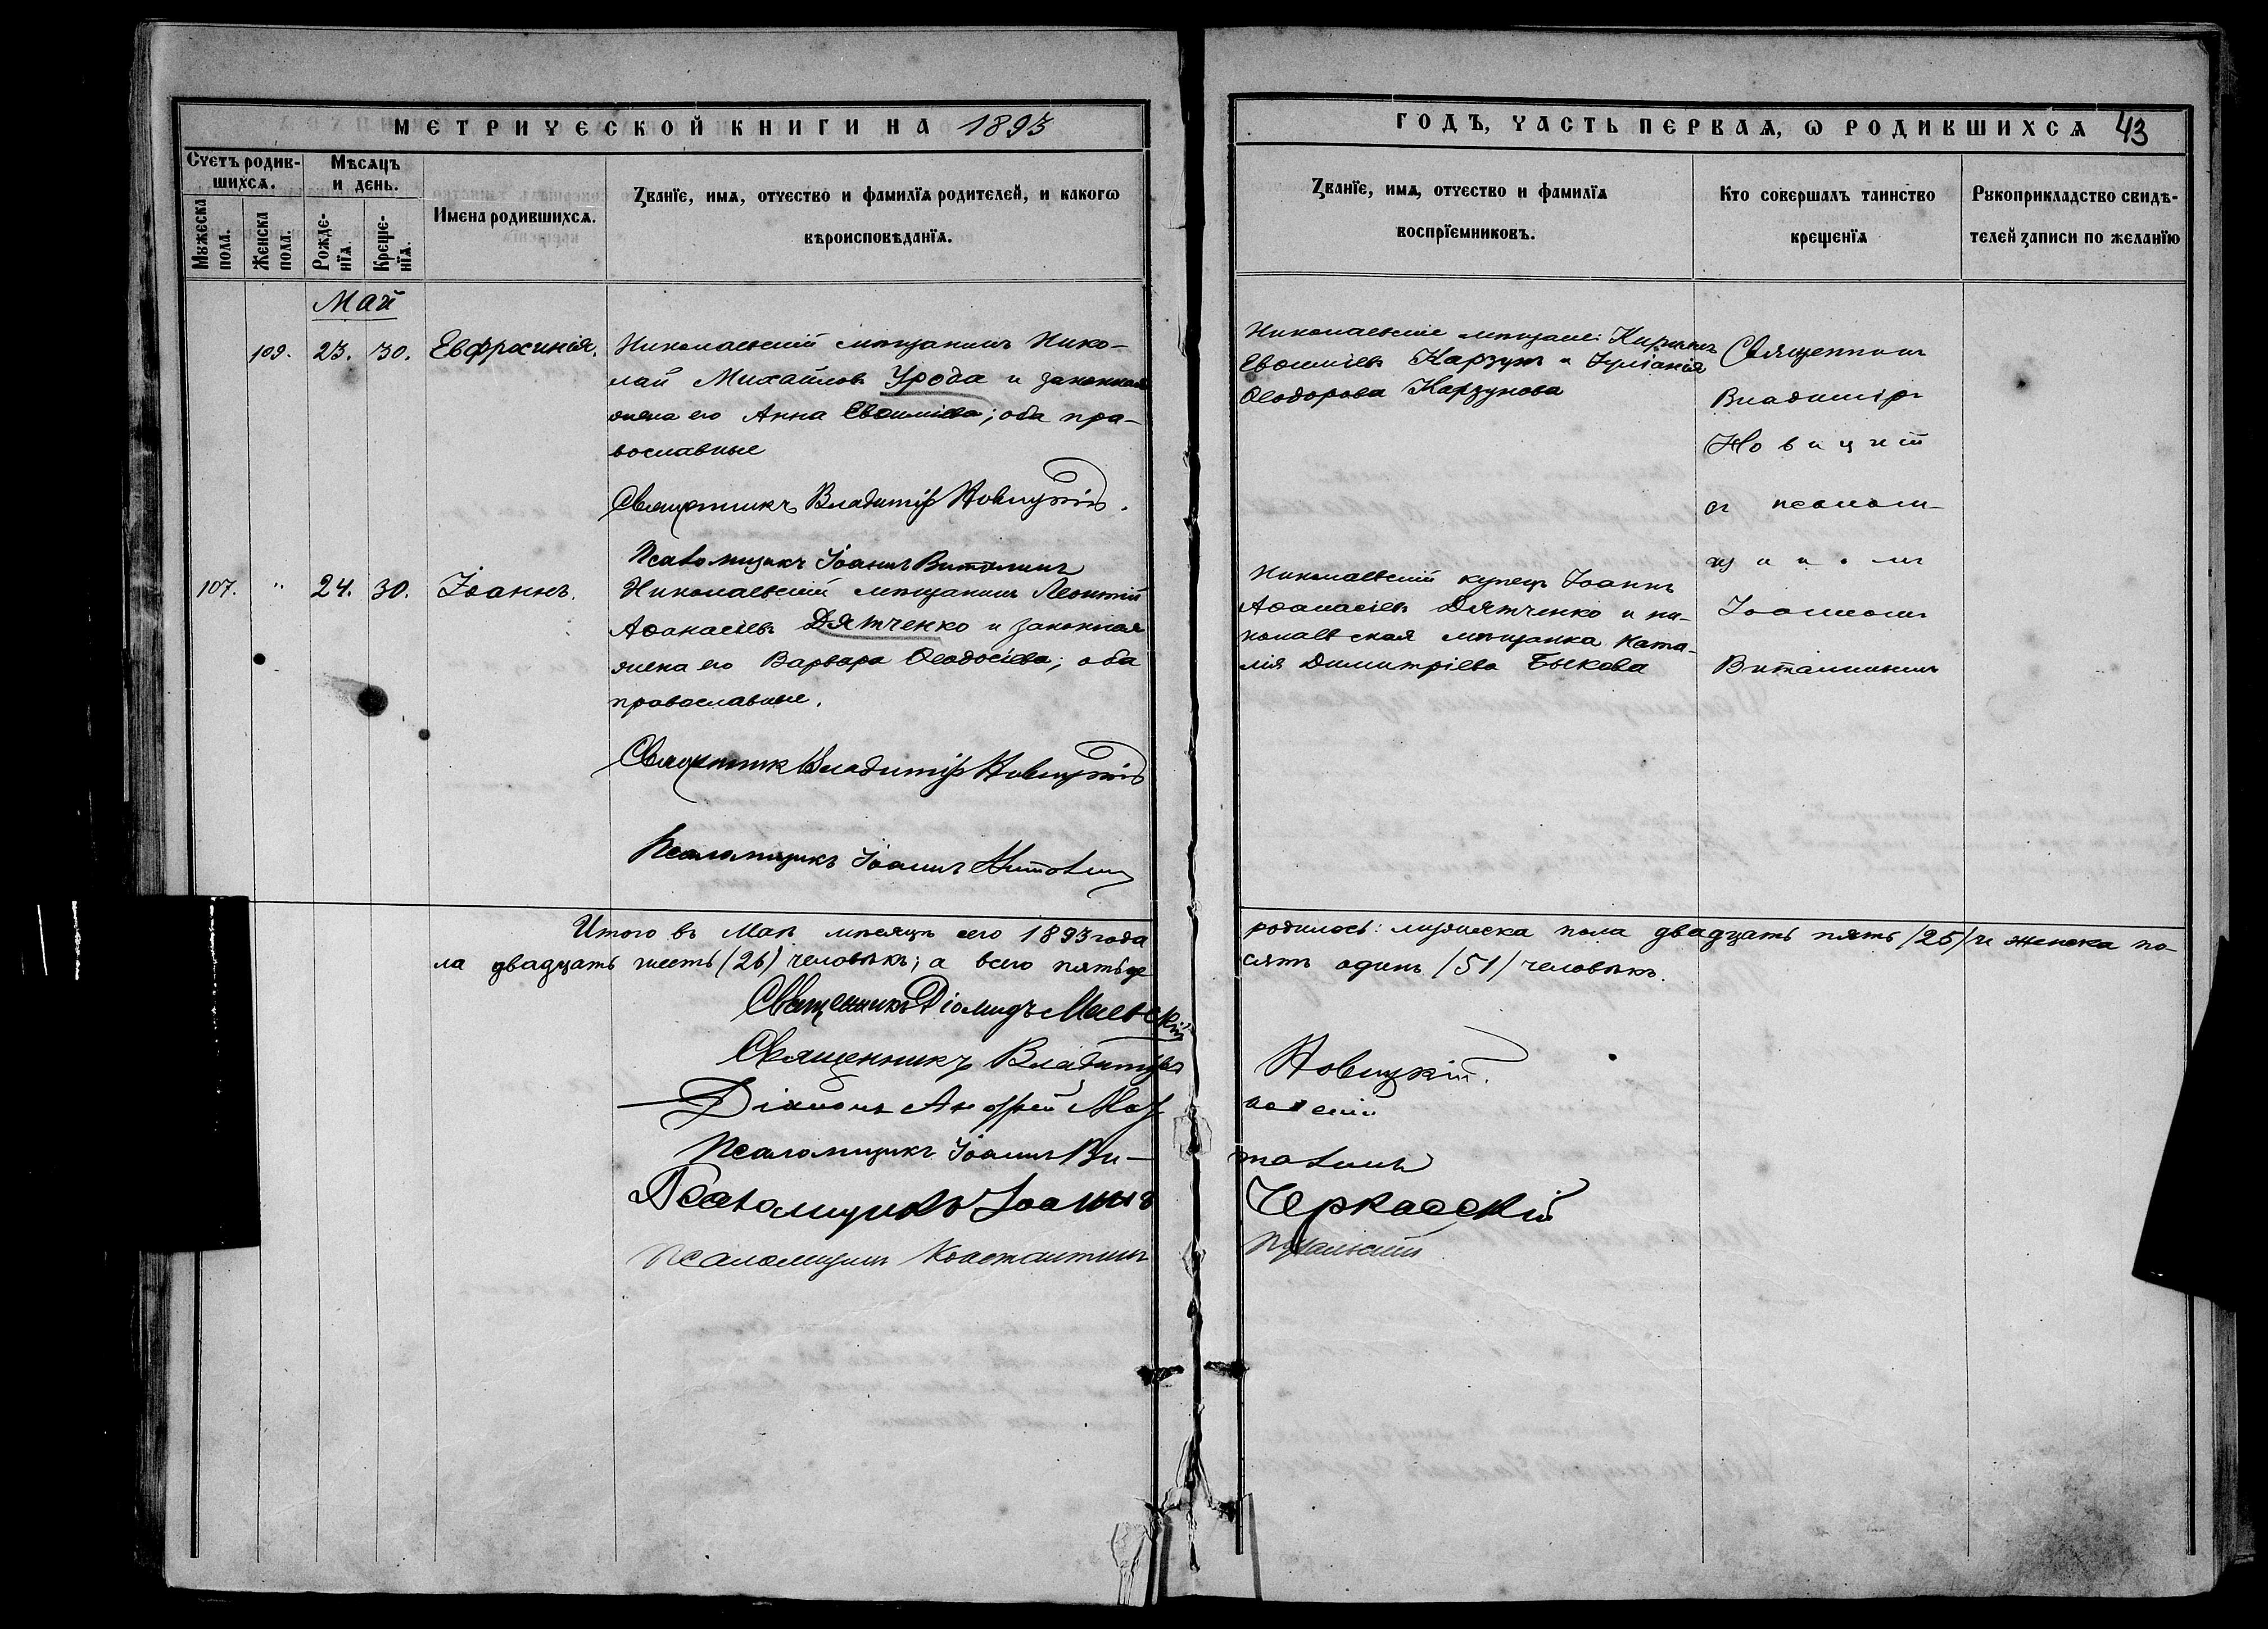 МЕТРИЧЕСКОЙ КНИГИ НА 1893
ГОДЪ, ЧАСТЬ ПЕРВАѦ, Ѡ РОДИВШИХСѦ 43
Счетъ родив-
шихсѧ.
Мѣсѧцъ
и день.
Мꙋжеска
пола.
Женска
пола.
Рожде-
нїѧ.
Креще-
нїѧ.
Имена родившихсѧ.
Званїе, имѧ, отчество и фамилїѧ родителей, и какогѡ
вѣроисповѣданїѧ.
Званїе, имѧ, отчество и фамилїѧ
воспрїемниковъ.
Кто совершалъ таинство
крещенїѧ
Рꙋкоприкладство свидѣ-
телей записи по желанїю
Май
109. 23. 30. Евфросинія.
Николаевскій мѣщанинъ Нико-
лай Михайловъ Урода и законная
жена его Анна Евѳиміева; оба пра-
вославные
Священникъ Владиміръ Новицкій.
Псаломщикъ Іоаннъ Виталинъ
Николаевскіе мѣщане: Кириллъ
Евѳиміевъ Карзунъ и Іуліанія
Ѳеодорова Карзунова
Священникъ
Владиміръ
Новицкій
съ псалом-
щикомъ
Іоанномъ
Виталинымъ
107. " 24. 30. Іоаннъ.
Николаевскій мѣщанинъ Леонтій
Аѳанасіевъ Дятченко и законная
жена его Варвара Ѳеодосіева; оба
православные.
Священник Владиміръ Новицкій
Псаломщикъ Іоаннъ Виталин
Николаевскій купецъ Іоаннъ
Аѳанасіевъ Дятченко и ни-
колаевская мѣщанка Ната-
лія Димитріева Быкова
Итого въ Маѣ мѣсяцѣ сего 1893 года родилось: мужеска пола двадцать пять /25/ и женска по-
ла двадцать шесть /26/ человѣкъ; а всего пятьде сятъ одинъ /51/ человѣкъ.
Священникъ Діомидъ Маевскій
Священникъ Владиміръ Новицкій.
Діаконъ Андрей
Псаломщикъ Іоаннъ Ви- талинъ
Псаломщикъ Іоаннъ Черкасскій
Псаломщикъ Константинъ